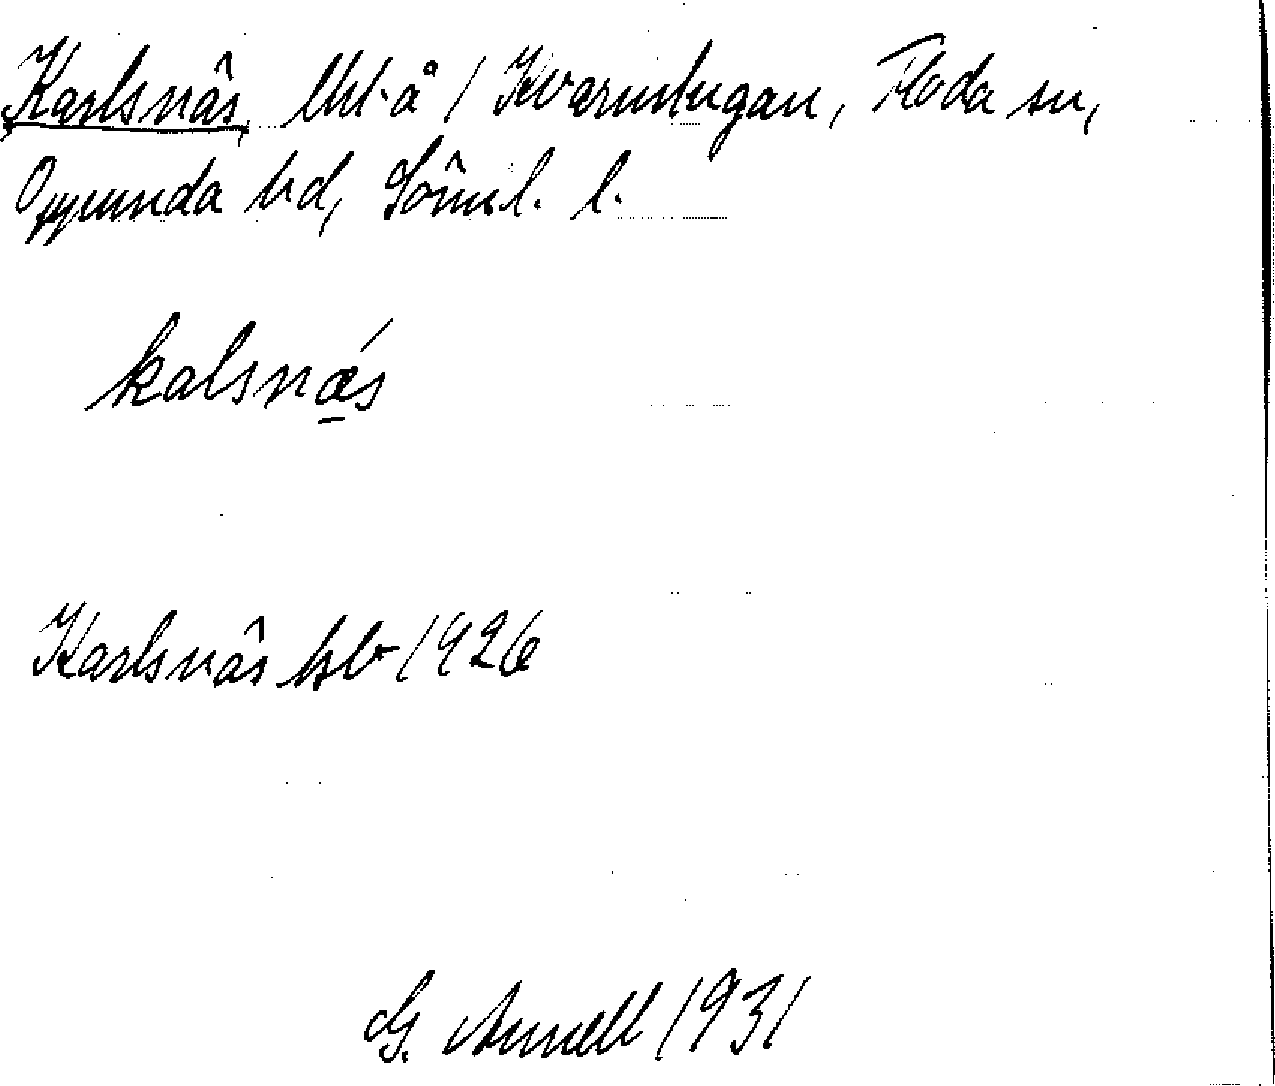 Karlsnäs, lht. å 1 Kvarnstugan, Floda sn,
Oppunda hd, Söml. l.
kalsnǽ̱s
Karlsnäs hfl 1926
G. Arnell 1931